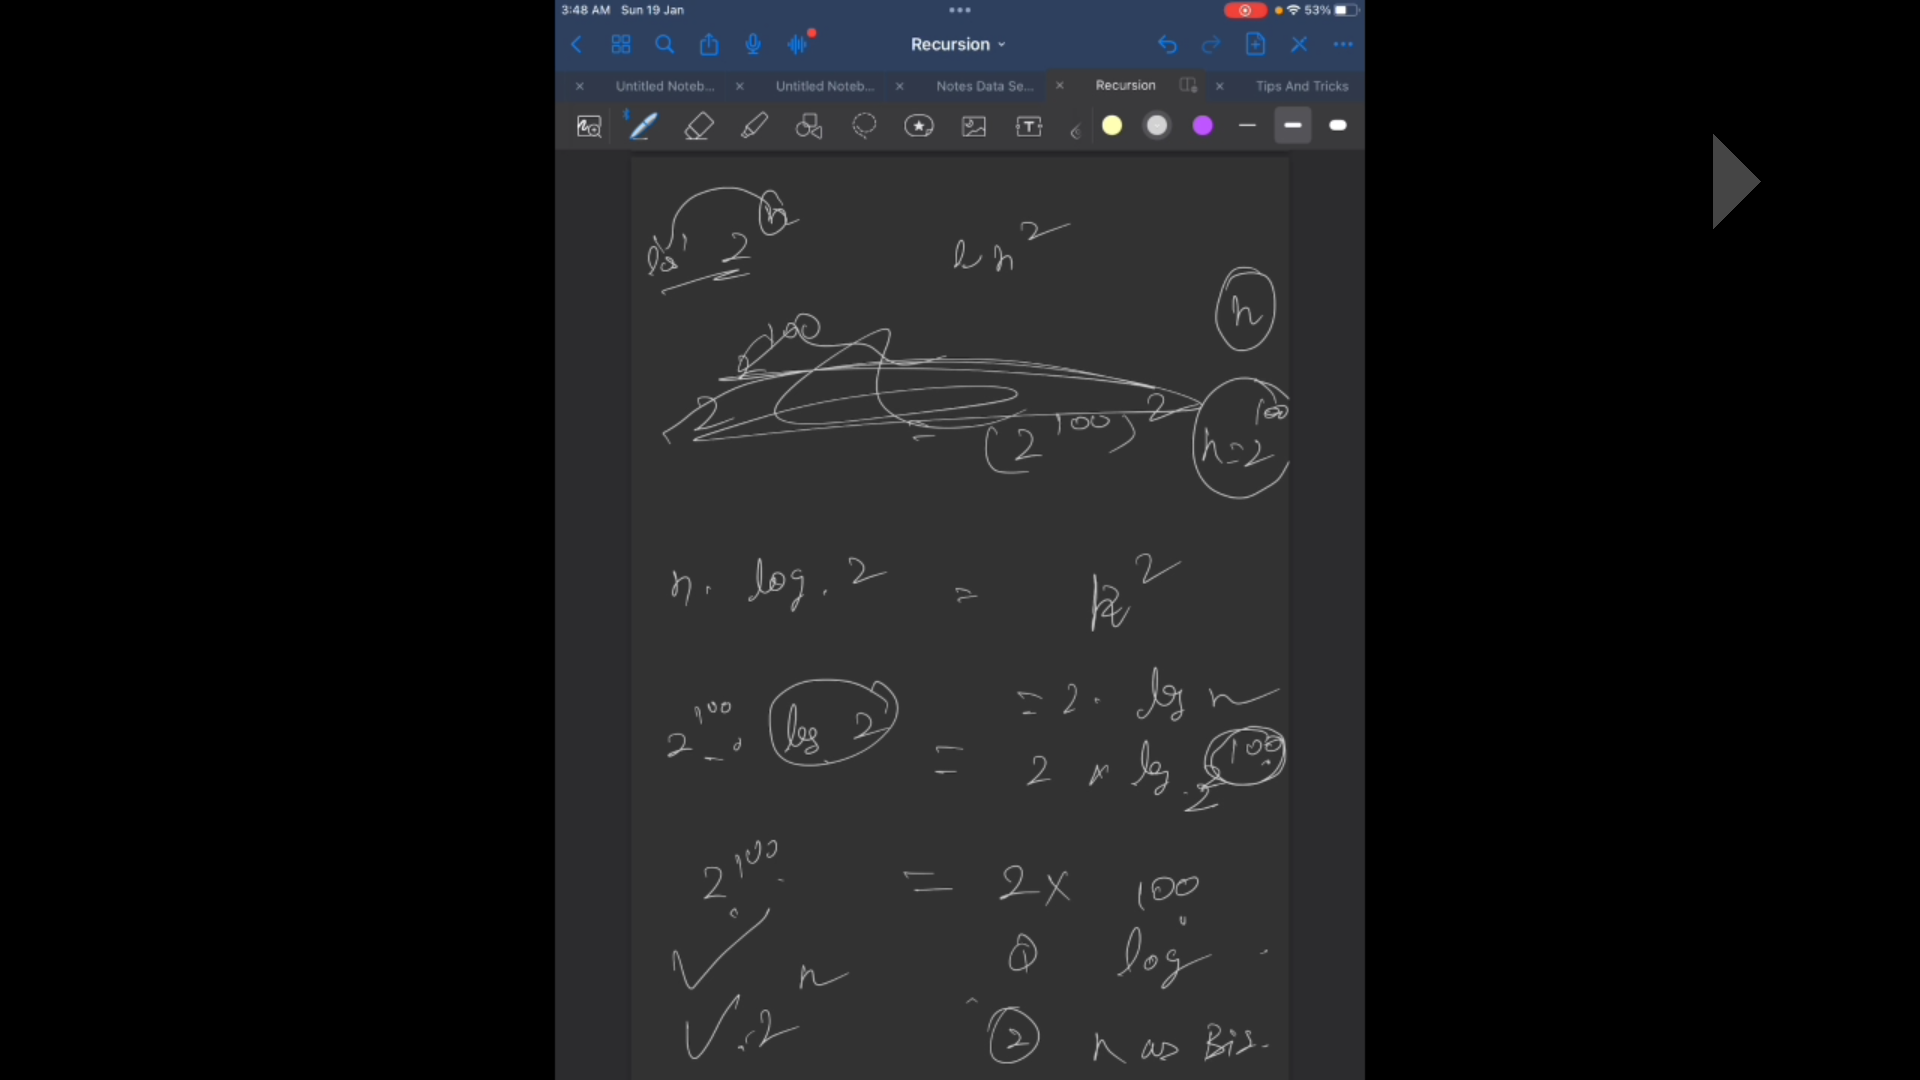 3:48 AM Sun 19 Jan
53%
Recursion
Untitled Noteb... Untitled Noteb... Notes Data Se... Recursion Tips And Tricks
log 2^n
n^2
n
2^100
2
(2^100)^2
n=2^100
n. log. 2 = n^2
= 2. log n
2^100 . log 2 = 2 × log 2^100
2^100 = 2 × 100
① log
n
2
② n as Big.